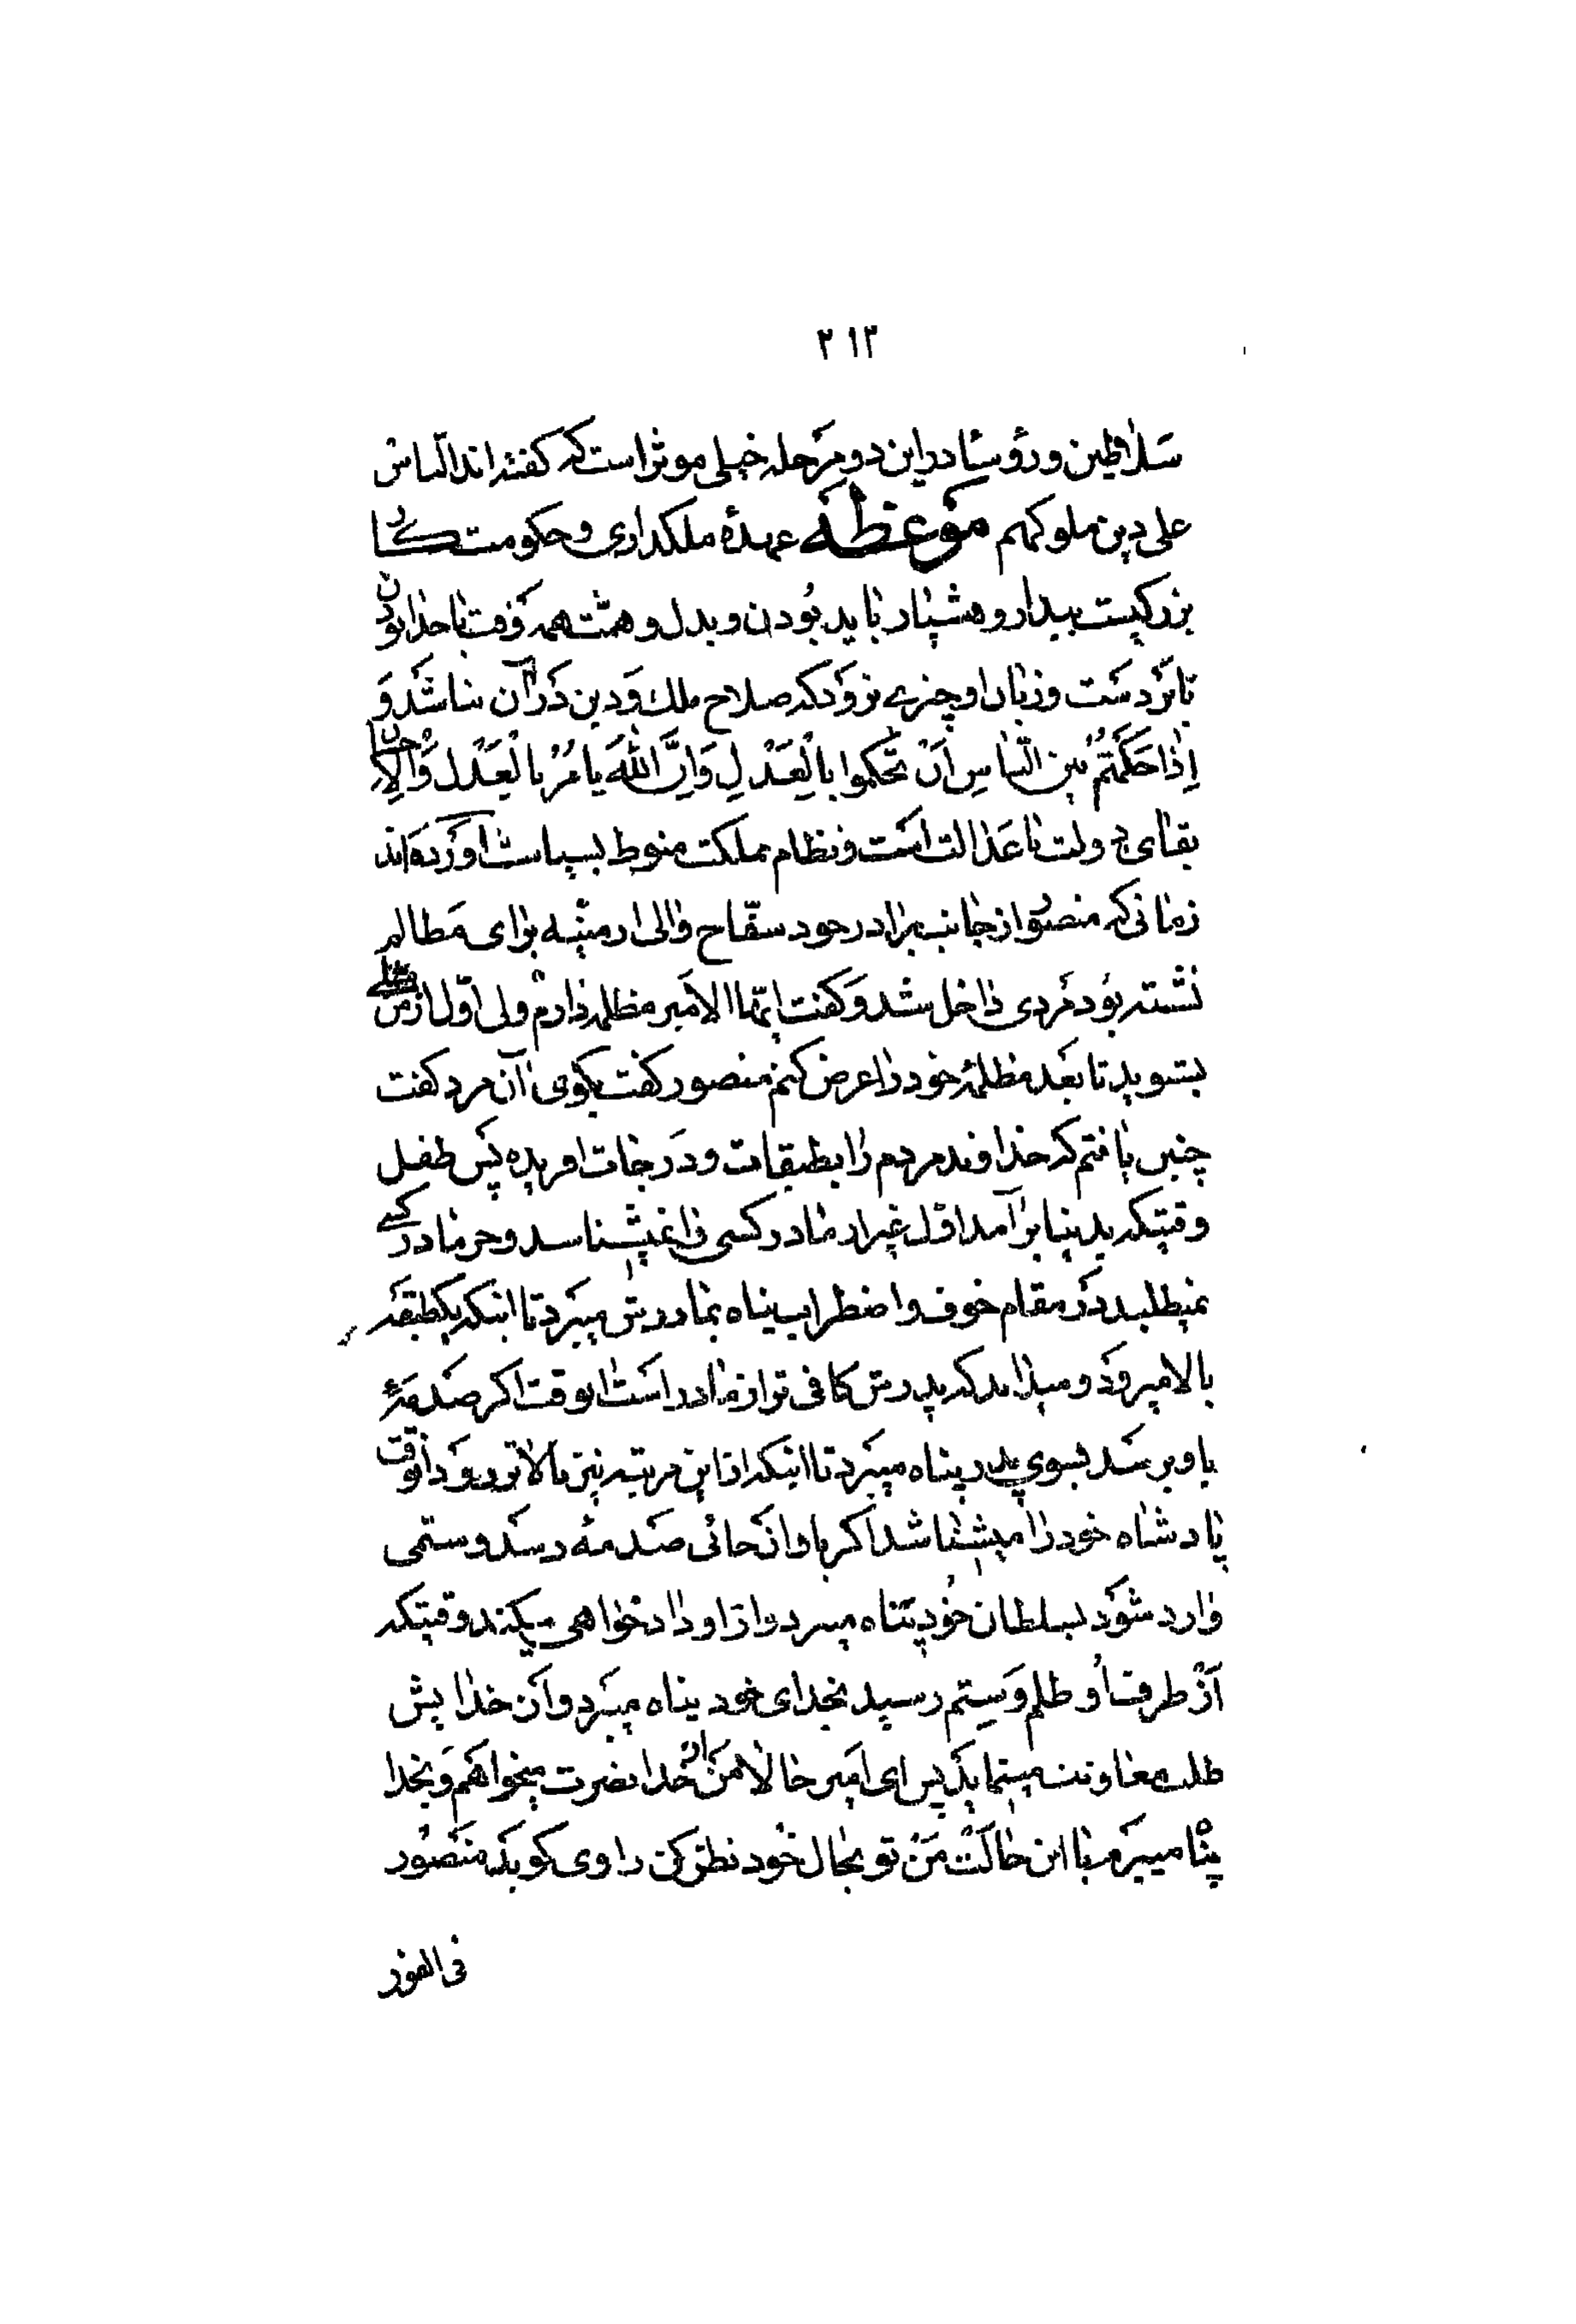 ۲۱۳
سلاطین و رؤسا در این دو مرحله خیلی موثر است که گفته‌اند الناس
علی دین ملوکهم موعظه عهدهٔ ملکداری و حکومت کار
بزرگیست بیدار و هشیار باید بودن و بدل و همت همه وقت با خدا بودن
تا بر دست و زبان او چیزے نرود که صلاح ملک و دین در آن نباشد وَ
اِذٰا حَکَمْتُمْ بین النّاسِ اَنْ تحکموا بالْعَدْلِ وَاِنَّ اللّٰهَ یامُرُ بالْعَدْل وَالْاِحْسٰان
بقای دولت با عدالت است و نظام مملکت منوط بسیاست آورده‌اند
زمانی که منصور از جانب برادر خود سفّاح والی ارمنیه برای مظالم
نشسته بود مردی داخل شد و گفت ایّها الامیر مظلمه دارم ولی اوّل از من مثلے
بشنوید تا بعد مظلمهٔ خود را عرض کنم منصور گفت بگوی آن مرد گفت
چنین یافتم که خداوند مردم را بطبقات و درجات آفریده پس طفل
وقتیکه بدینیا برآمد اوّل غیر از مادر کسی را نمیشناسد و جز مادر کسے
نمیطلبد در مقام خوف و اضطراب پناه بمادرش میبرد تا اینکه یکطبقه
بالا میرود و میداند که پدرش کافی تر از مادر است انوقت اگر صدمهٔ
باو برسد بسوی پدر پناه میبرد تا اینکه از این مرتبه نیز بالاتر رود انوقت
پادشاه خود را میشناسد اگر باو از جائی صدمه رسد و ستمی
وارد شود بسلطان خود پناه میبرد و از او دادخواهی میکند وقتیکه
از طرف او ظلم و ستم رسید بخدای خود پناه میبرد و از خدایش
طلب معاونت مینماید پس ای امیر حالا من از خدا نصرت میخواهم و بخدا
پناه میبرم با این حالت من تو بحال خود نظر کن راوی گوید منصور
فی الفور